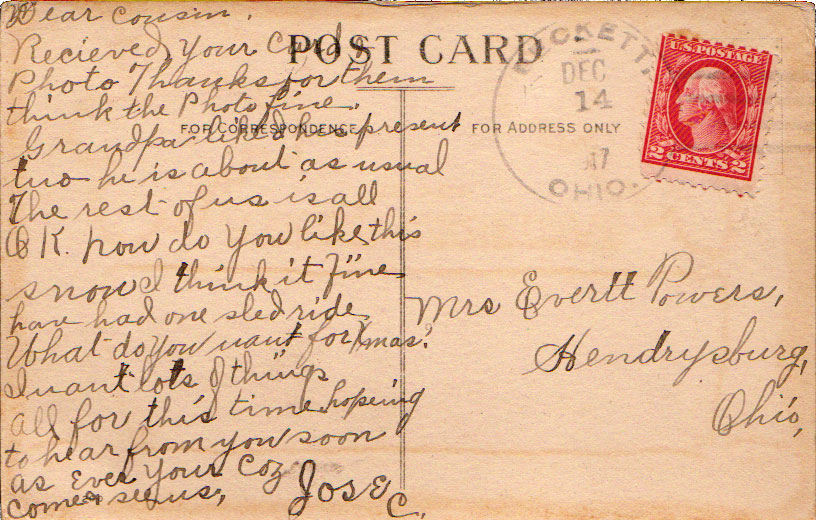 Dear Cousin.
Recieved Your Card &
Photo Thanks for them
think the Photo fine.
Grandpa liked his present
two he is about as usual
The rest of us is all
O K. how do You like this
snow I think it fine
have had one sled ride
What do you want for Xmas?
I want lots of things
all for this time hoping
to hear from you soon
as Ever Your Coz
come see us,
Jose C.
POST CARD
FOR CORRESPONDENCE
FOR ADDRESS ONLY
DEC
14
17
OHIO.
U.S. POSTAGE
2 CENTS 2
Mrs Evertt Powers,
Hendrysburg,
Ohio,